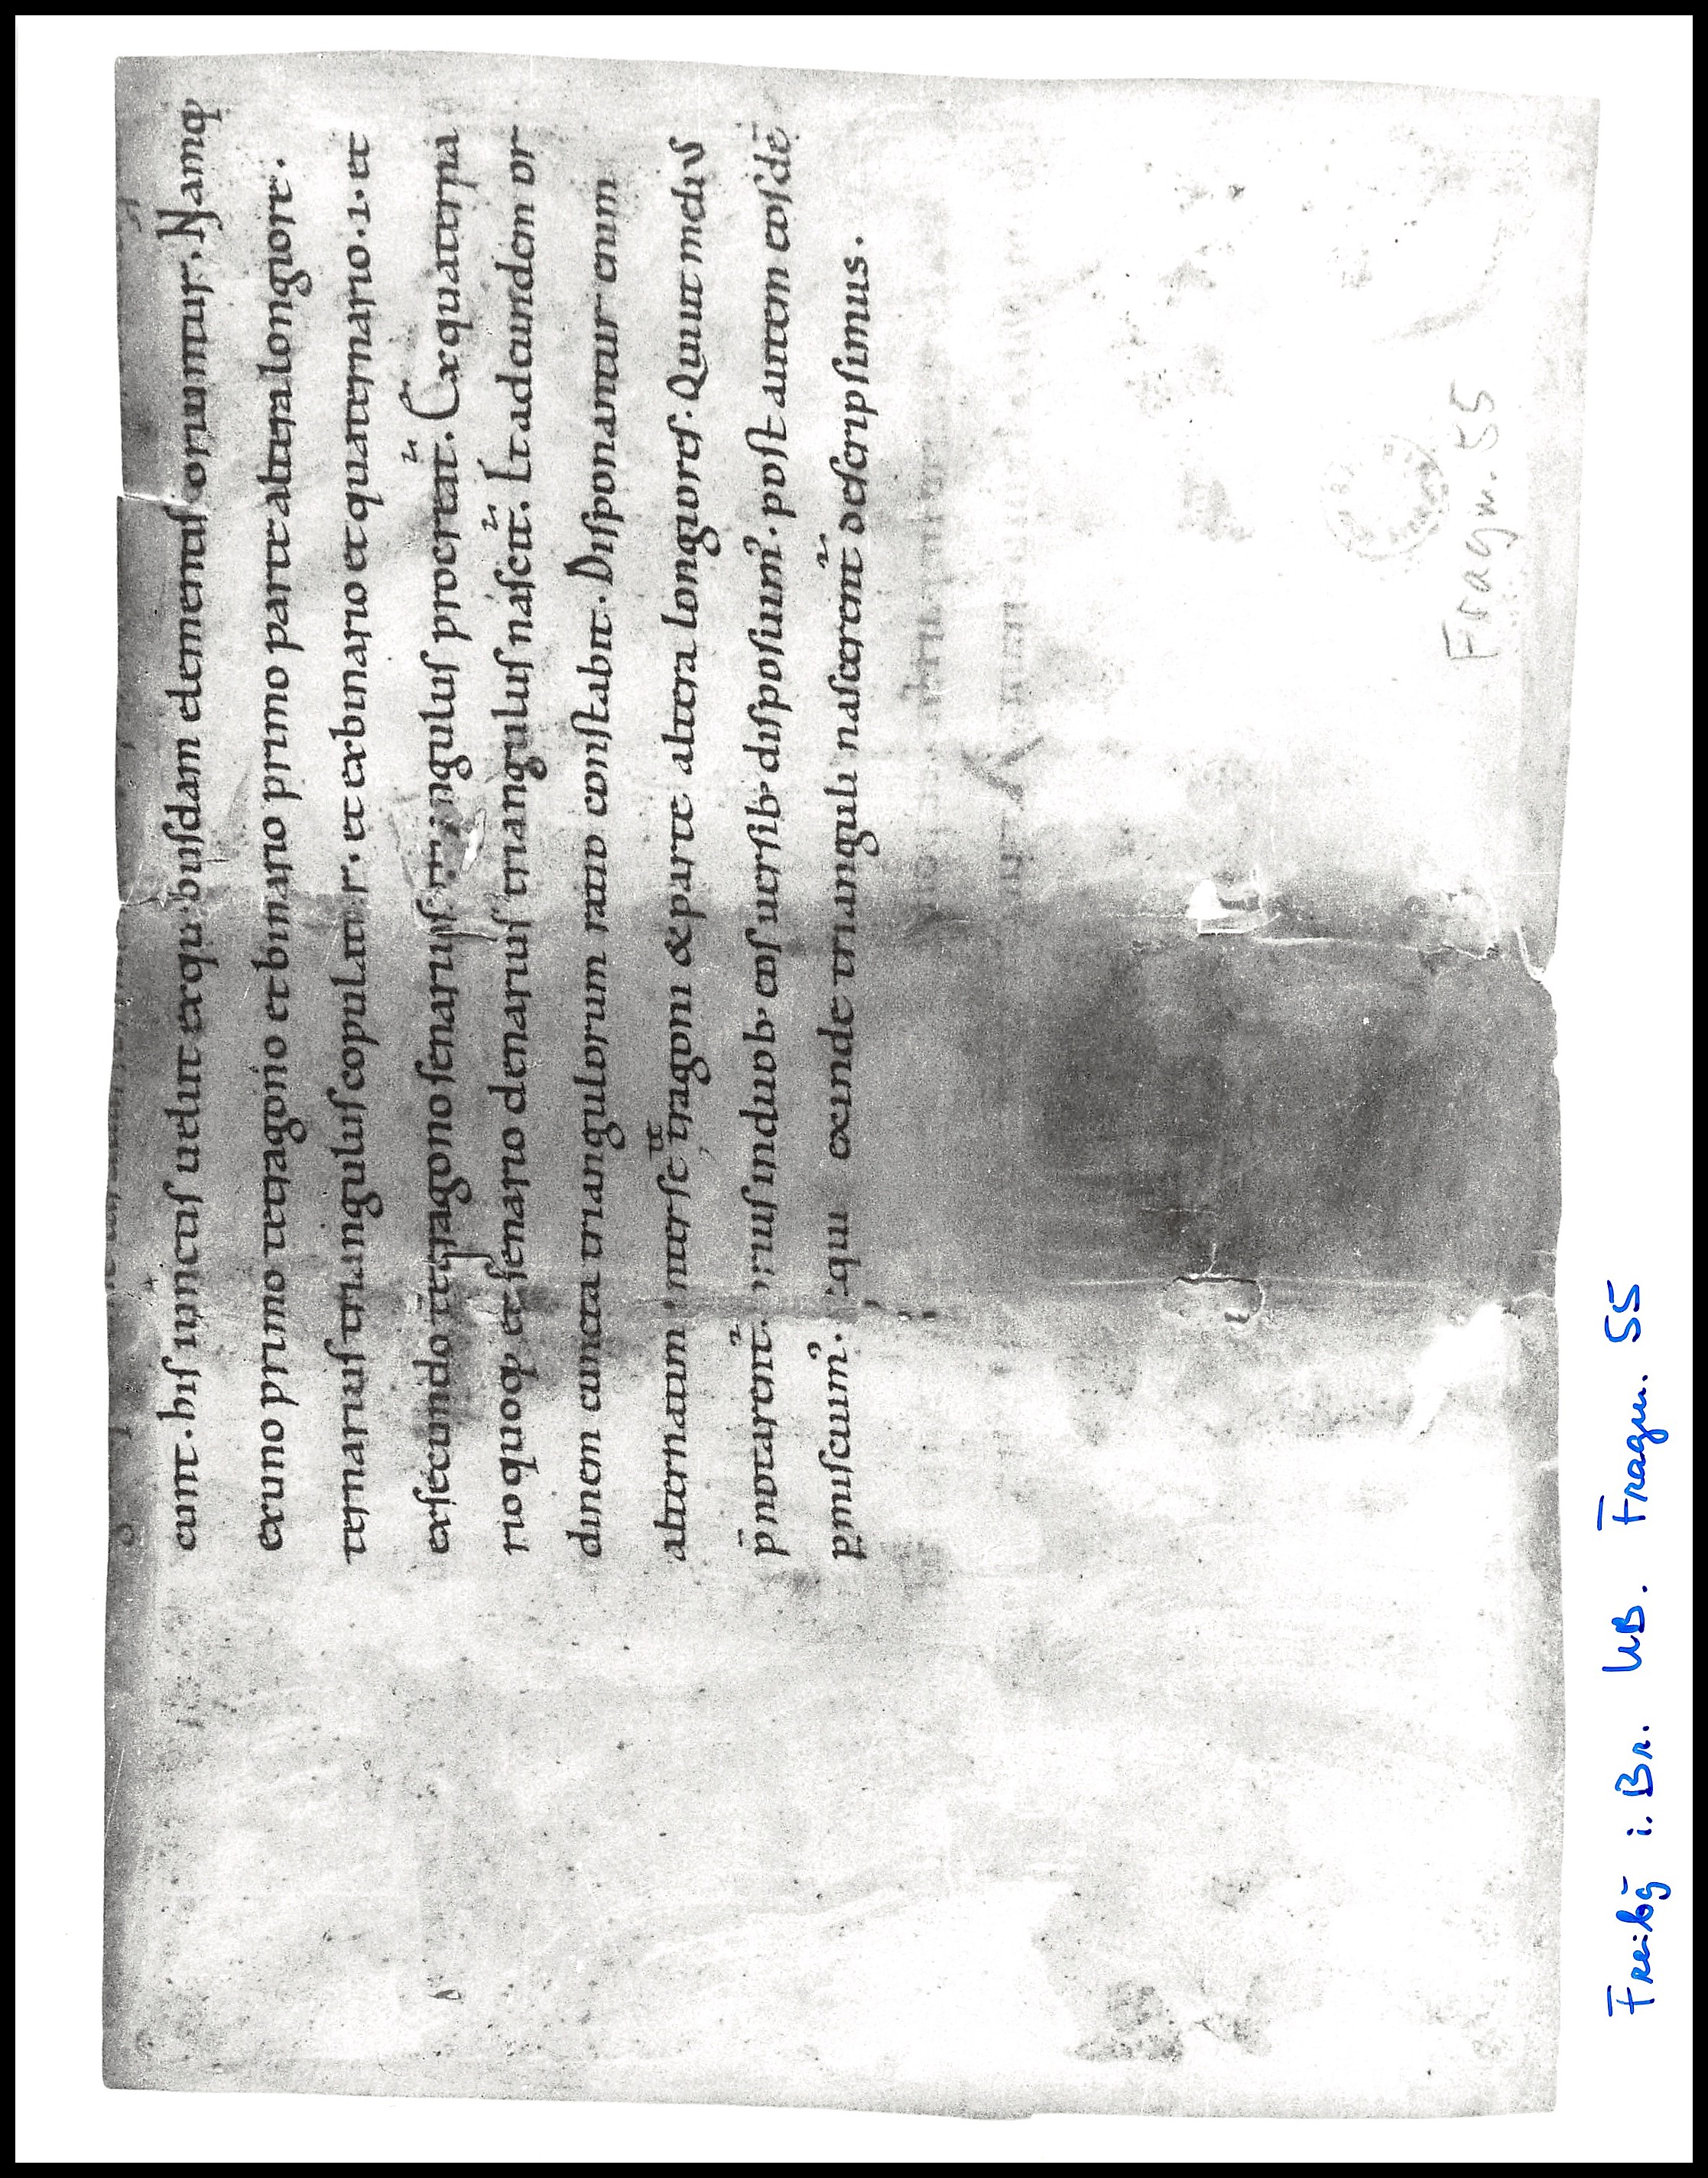 cunt. hıſ ıunctıſ uelutı ex quıbuſdam elementıſ orıuntur. Namꝗ
ex uno prımo tetragono et bınarıo prımo parte altera longıore.
ternarıuſ trıanguluſ copulatur. et ex bınarıo et quaternarıo .ı. et
ex ſecundo tetragono ſenarıuſ trıanguluſ procreat᷑. Ex quaterna
rıo quoꝗ et ſenarıo denarıuſ trıanguluſ naſcıt᷑. Et ad eundem or
dınem cuncta trıangulorum ratıo conſtabıt. Dıſponantur enım
alternatım ınter ſe tetragonı & parte altera longıoreſ. Quı ut melıuſ
p̄notarent᷑. ın duob. eoſ uerſıb. dıſpoſuım᷒. poſt autem eoſdē
p̱mıſcuım᷒. quı exınde trıangulı naſcerent᷑ deſcrıpſımus.
Fragm. 55
Freibg i. Br. UB. Fragm. 55